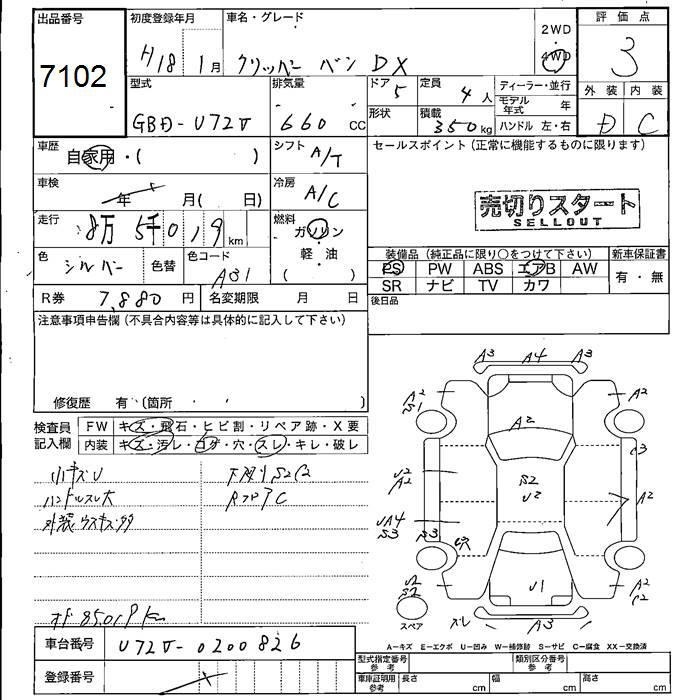 出品番号
7102
初度登録年月
H18 1月
車名・グレード
クリッパー バン DX
2WD
4WD
評価点
3
型式
GBD-U72V
排気量
660 CC
ドア 5
定員 4人
形状
積載 350kg
ディーラー・並行
モデル年式 年
ハンドル 左・右
外装 内装
D C
車歴
自家用・( )
シフト A/T
セールスポイント(正常に機能するものに限ります)
売切りスタート
SELLOUT
車検
年 月( 日)
冷房 A/C
走行
8万 5千 0 1 9 km
燃料
ガソリン
・
軽油
( )
色 シルバー 色替
色コード A31
装備品(純正品に限り〇をつけて下さい)
新車保証書
PS PW ABS エアB AW
有・無
SR ナビ TV カワ
R券 7,880円 名変期限 月 日
後日品
注意事項申告欄(不具合内容等は具体的に記入して下さい)
修復歴 有・(箇所 ・ ・ )
検査員
記入欄
FW キズ・飛石・ヒビ割・リペア跡・X要
内装 キズ・汚レ・コゲ・穴・スレ・キレ・破レ
小キズU
下廻りS2C2
ハンドルスレ大
RフロアC
外装ウスキズ多
オド85019km
A3 A4 A3
A2
S1
A2
A2
C3
U2
A2
S2
U2
A2
UA4
S3 S3
U穴
U2
S2
U1
A2
C2
スペア
スレ
A3
車台番号 U72V-0200826
登録番号
A−キズ E−エクボ U−凹み W−補修跡 S−サビ C−腐食 XX−交換済
型式指定番号
参考
類別区分番号
参考
車庫証明用
参考
長さ cm 幅 cm 高さ cm